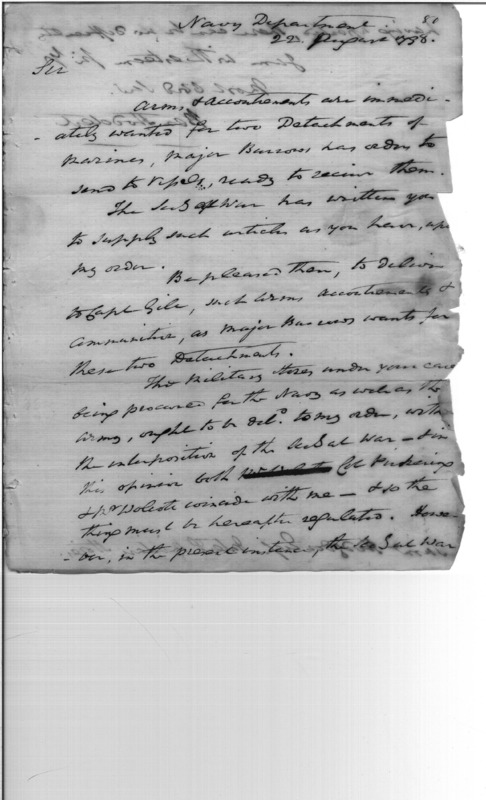 80
Navy Department
22 August 1798.
Sir
Arms & accoutrements are immedi-
-ately wanted for two Detachments of
Marines, Major Burrows has orders to
send to Vessels, ready to receive them.
The Sec. of War has written you
to supply such articles as you have, upon
my order.
Be pleased then, to deliver
to Capt Gile, such arms accoutrements &
ammunition, as Major Burrows wants for
these two Detachments.
The Military Stores under your care
being procured for the Navy as well as the
Army, ought to be deld. to my order, without
the interposition of the Sec. of War — & in
this opinion both Col Pickering
& Mr Wolcott coincide with me — & so the
thing must be hereafter regulated. Howe-
-ver, in the present instance, the Sec. of War